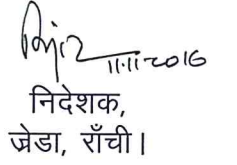 11.11.2016
निदेशक,
ज्रेडा, राँची।